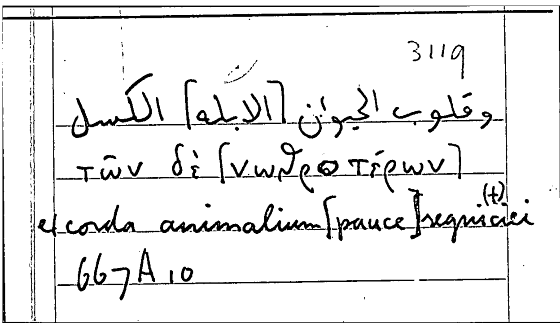 3119
وقلوب الحيوان [الابله] الكسل
τῶν δὲ [νωθροτέρων]
et corda animalium [pauce] segniciei (t)
667A10